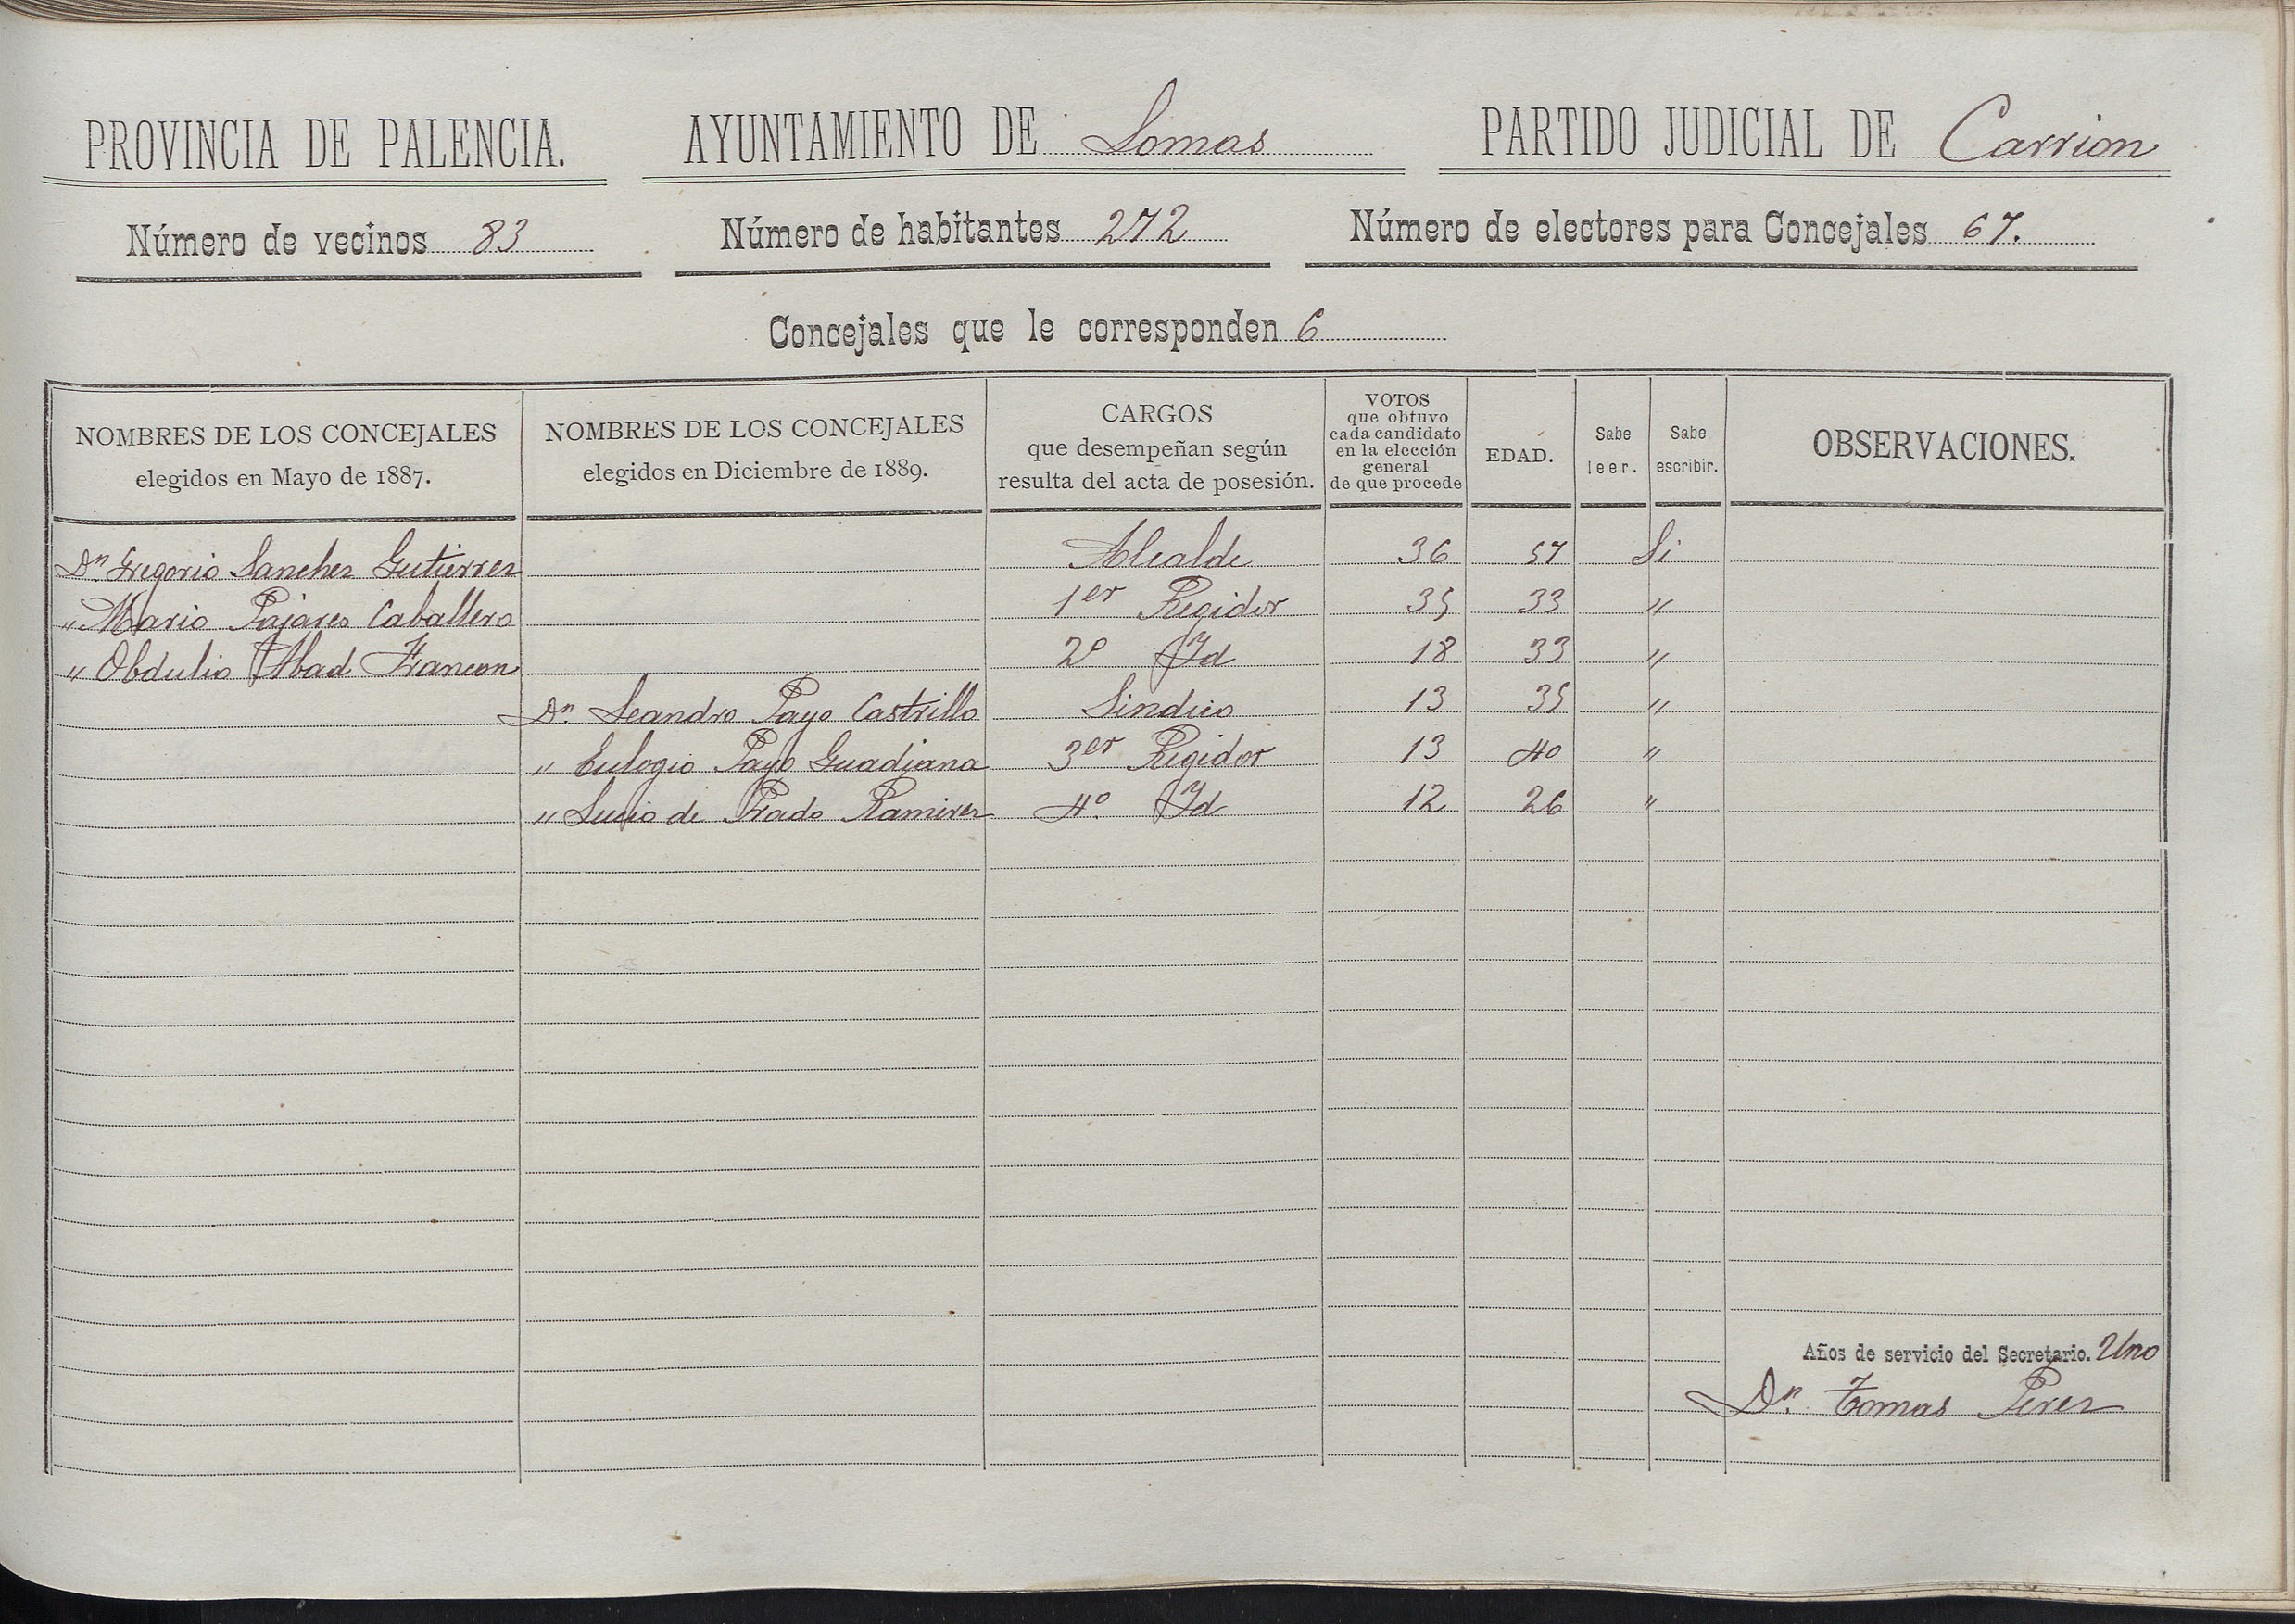 PROVINCIA DE PALENCIA. AYUNTAMIENTO DE Lomas PARTIDO JUDICIAL DE Carrion
Número de vecinos 83 Número de habitantes 272 Número de electores para Concejales 67.
Concejales que le corresponden 6
NOMBRES DE LOS CONCEJALES
elegidos en Mayo de 1887.
NOMBRES DE LOS CONCEJALES
elegidos en Diciembre de 1889.
CARGOS
que desempeñan según
resulta del acta de posesión.
VOTOS
que obtuvo
cada candidato
en la elección
general
de que procede
EDAD.
Sabe
leer.
Sabe
escribir.
OBSERVACIONES.
Dn. Gregorio Sanchez Gutierrez Alcalde 36 57 Si
" Mario Pajares Caballero 1er Regidor 35 33 "
" Obdulio Abad Francon 2º Id 18 33 "
Dn. Leandro Payo Castrillo Sindico 13 35 "
" Eulogio Payo Guadiana 3er Regidor 13 40 "
" Lucio de Prado Ramirez 4º. Id 12 26 "
Años de servicio del Secretario. Uno
Dn. Tomas Perez